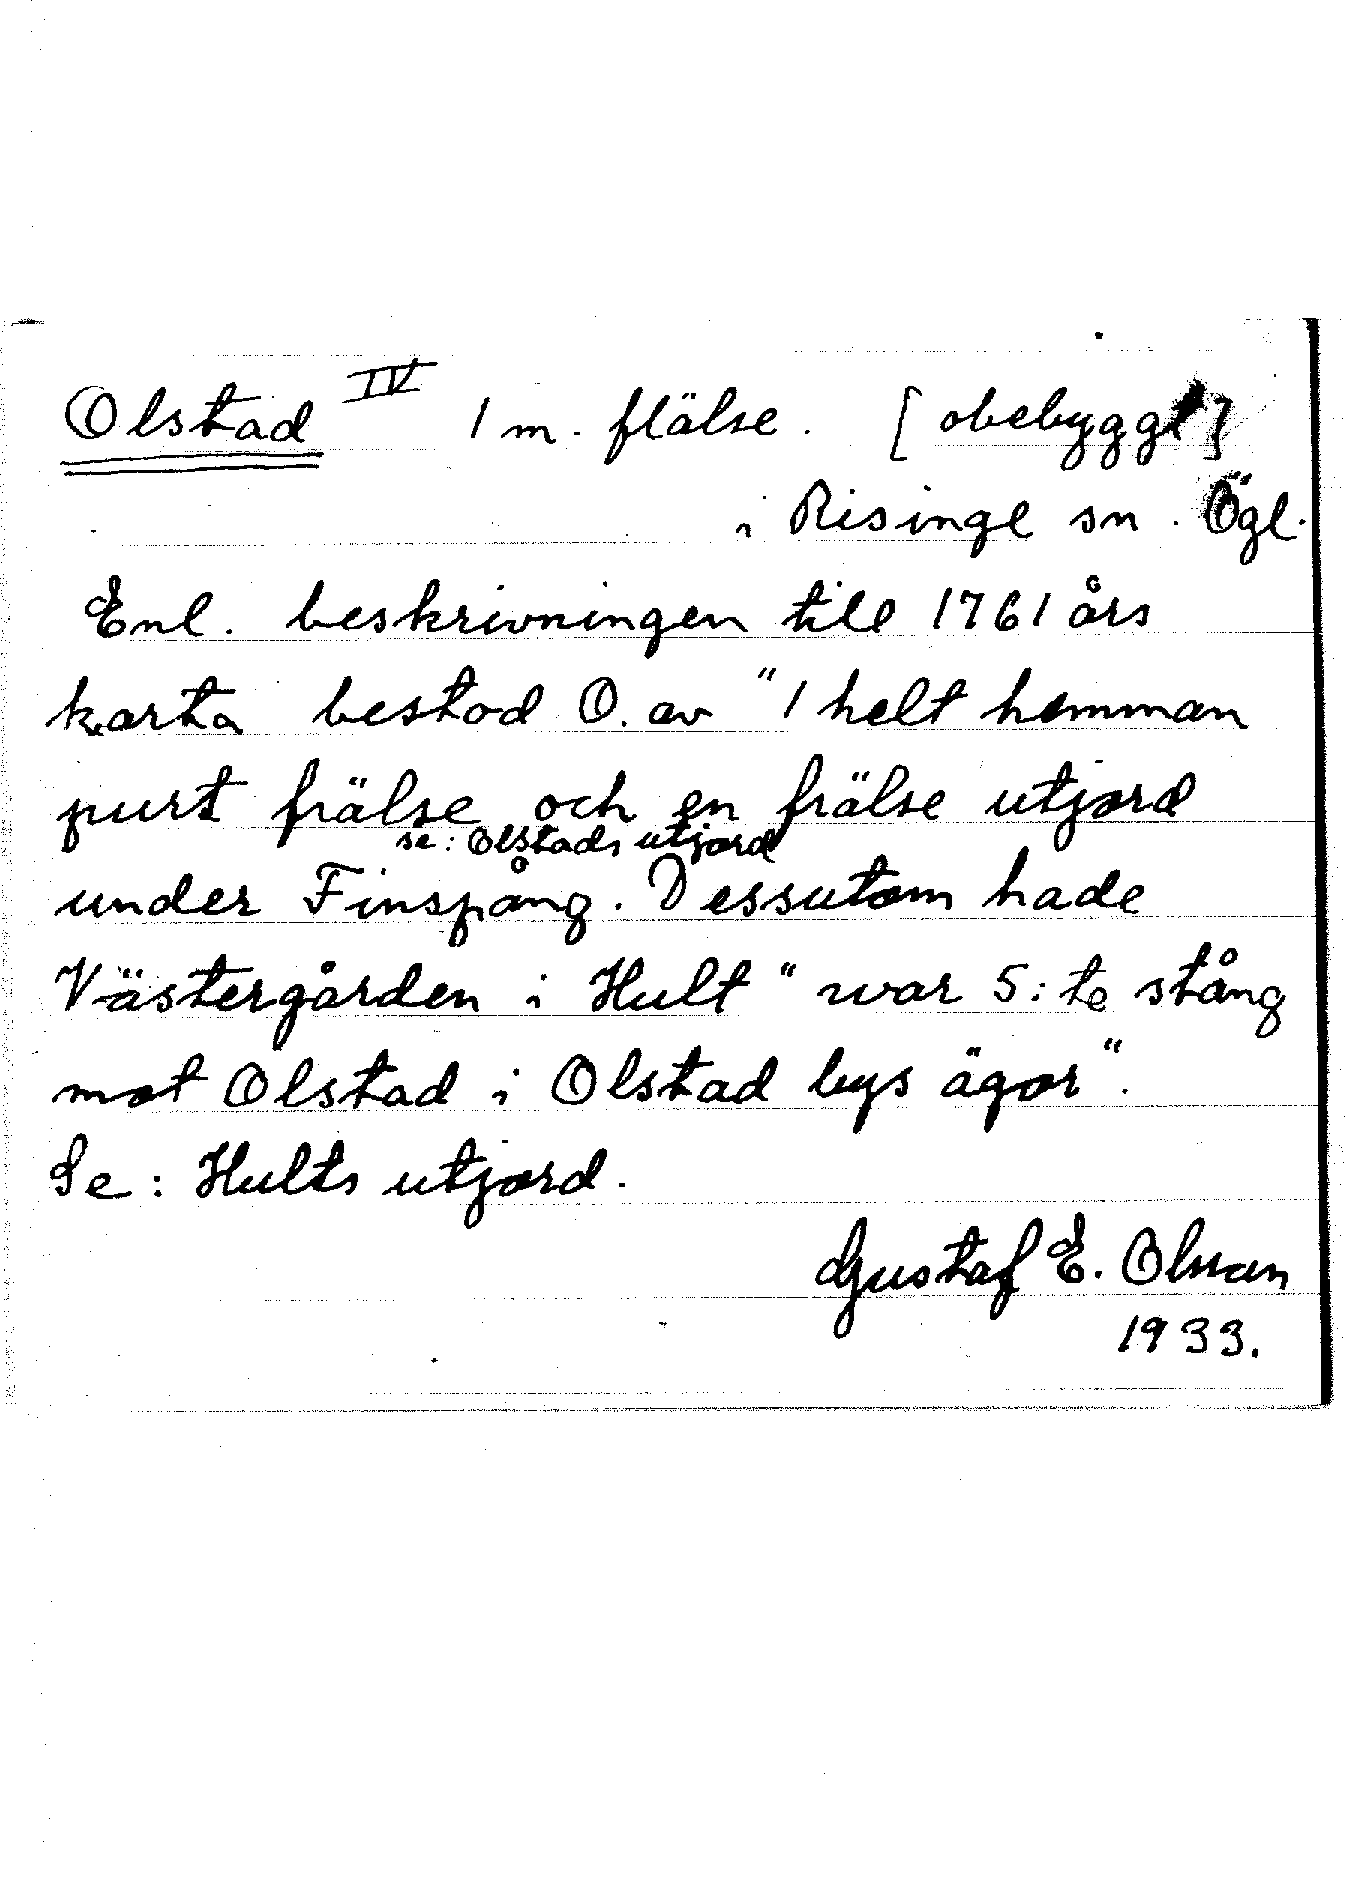 Olstad IV 1 m. flälse. [obebyggt]
i Risinge sn. Ögl.
Enl. beskrivningen till 1761 års
karta bestod O. av "1 helt hemman
purt frälse och en frälse utjord
se: Olstads utjord
under Finspång. Dessutom hade
Västergården i Hult "war 5:te stång
mot Olstad i Olstad bys ägor".
Se: Hults utjord.
Gustaf E. Olsson
1933.